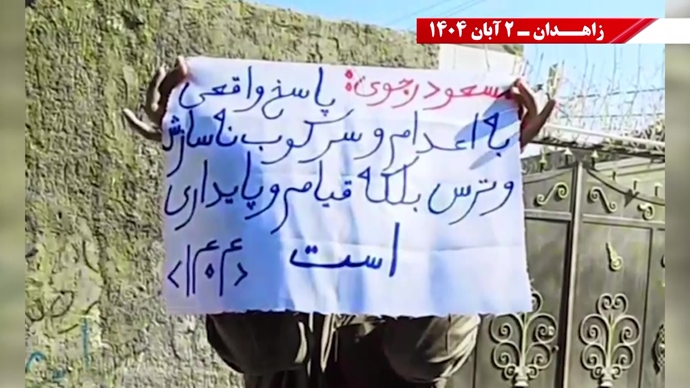 زاهـدان ــ ۲ آبان ۱۴۰۴
مسعود رجوی: پاسخ واقعی
به اعدام و سرکوب نه سازش
و ترس بلکه قیام و پایداری
است